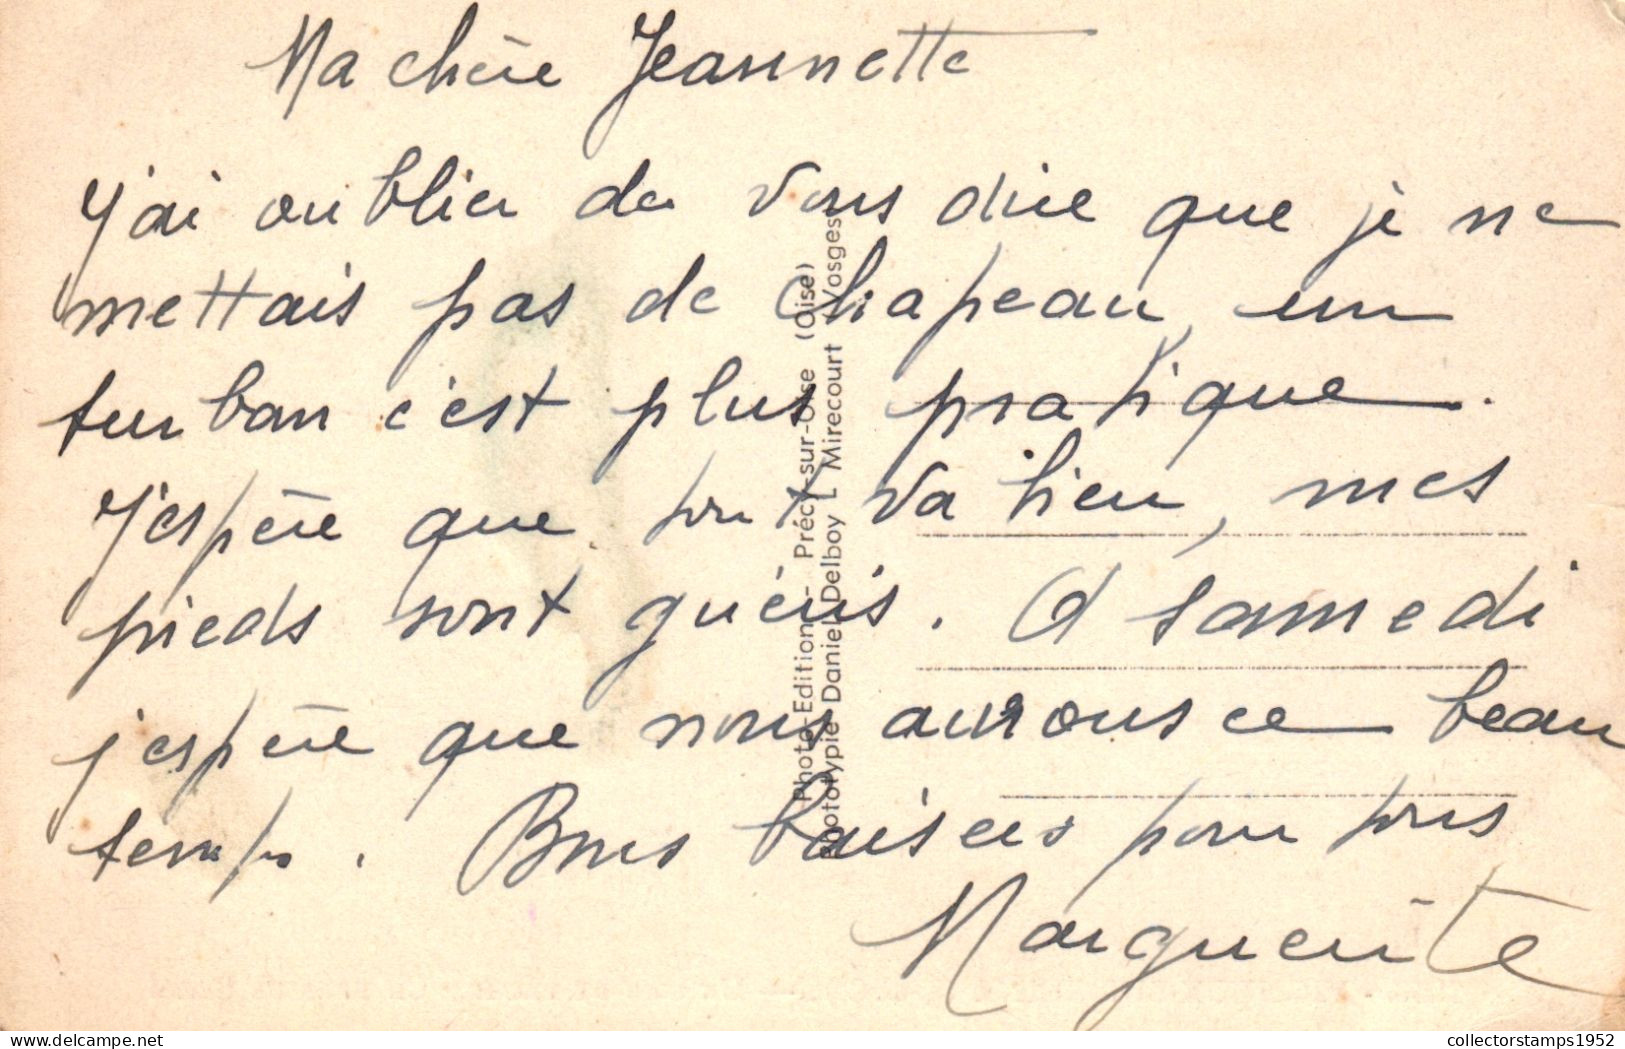 Ma chère Jeannette
J'ai oublier de vous dire que je ne
mettais pas de chapeau, un
turban c'est plus pratique.
J'espère que tout va bien, mes
pieds sont guéris. A samedi
j'espère que nous aurons ce beau
temps. Bons baisers pour tous
Marguerite
Photo-Edition - Précy-sur-Oise (Oise)
Phototypie Daniel Delboy L Mirecourt (Vosges)
delcampe.net
collectorstamps1952